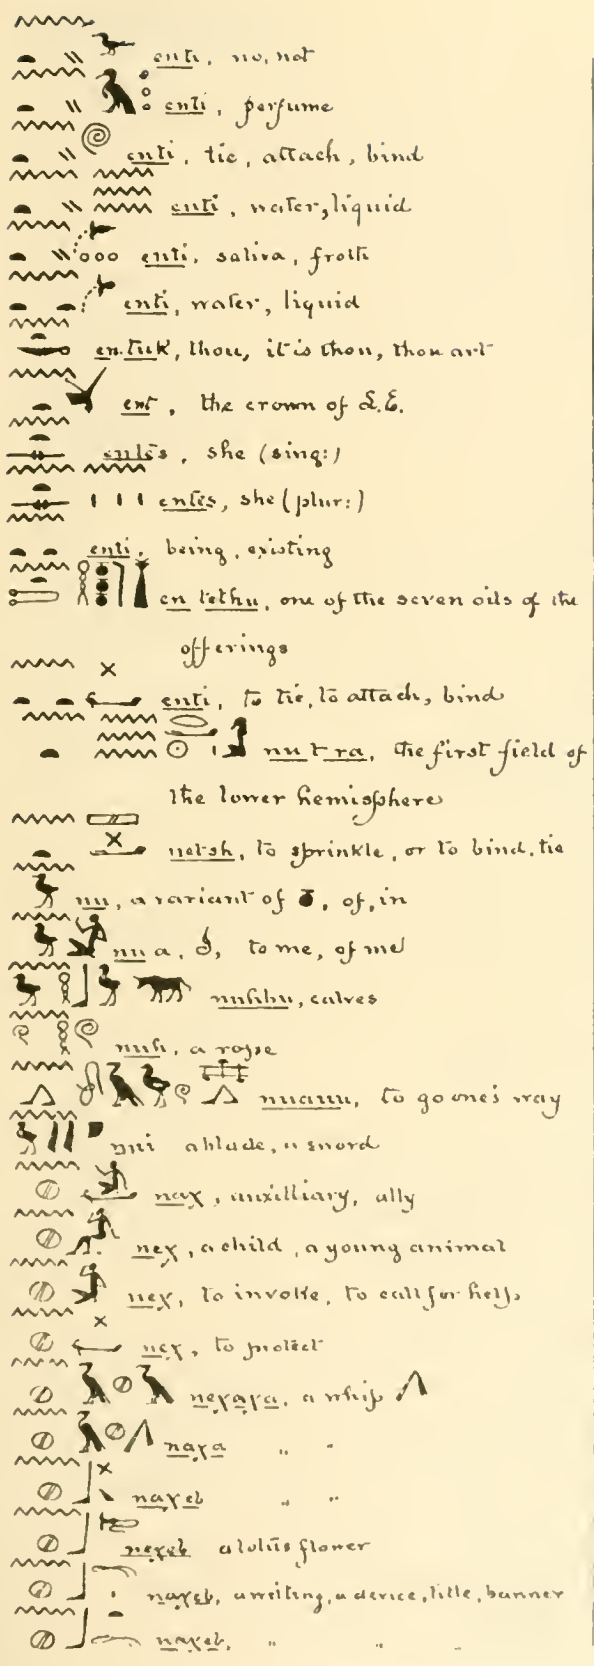 enti, no, not
enti, perfume
enti, tie, attach, bind
enti, water, liquid
enti, saliva, froth
enti, water, liquid
entuk, thou, it is thou, thou art
ent, the crown of L.E.
entes, she (sing:)
entes, she (plur:)
enti, being, existing
en tethu, one of the seven oils of the
offerings
enti, to tie, to attach, bind
nu t ra, the first field of
the lower hemisphere
netsh, to sprinkle, or to bind, tie
nu, a variant of, of, in
nu a, to me, of me
nuhbu, calves
nuh, a rope
nuauu, to go one's way
nui a blade, a sword
nax, auxilliary, ally
nex, a child, a young animal
nex, to invoke, to call for help
nex, to protect
nexaxa, a whip
naxa " "
naxeb " "
nexeb a lotus flower
naxeb, a writing, a device, title, banner
naxeb, " " "